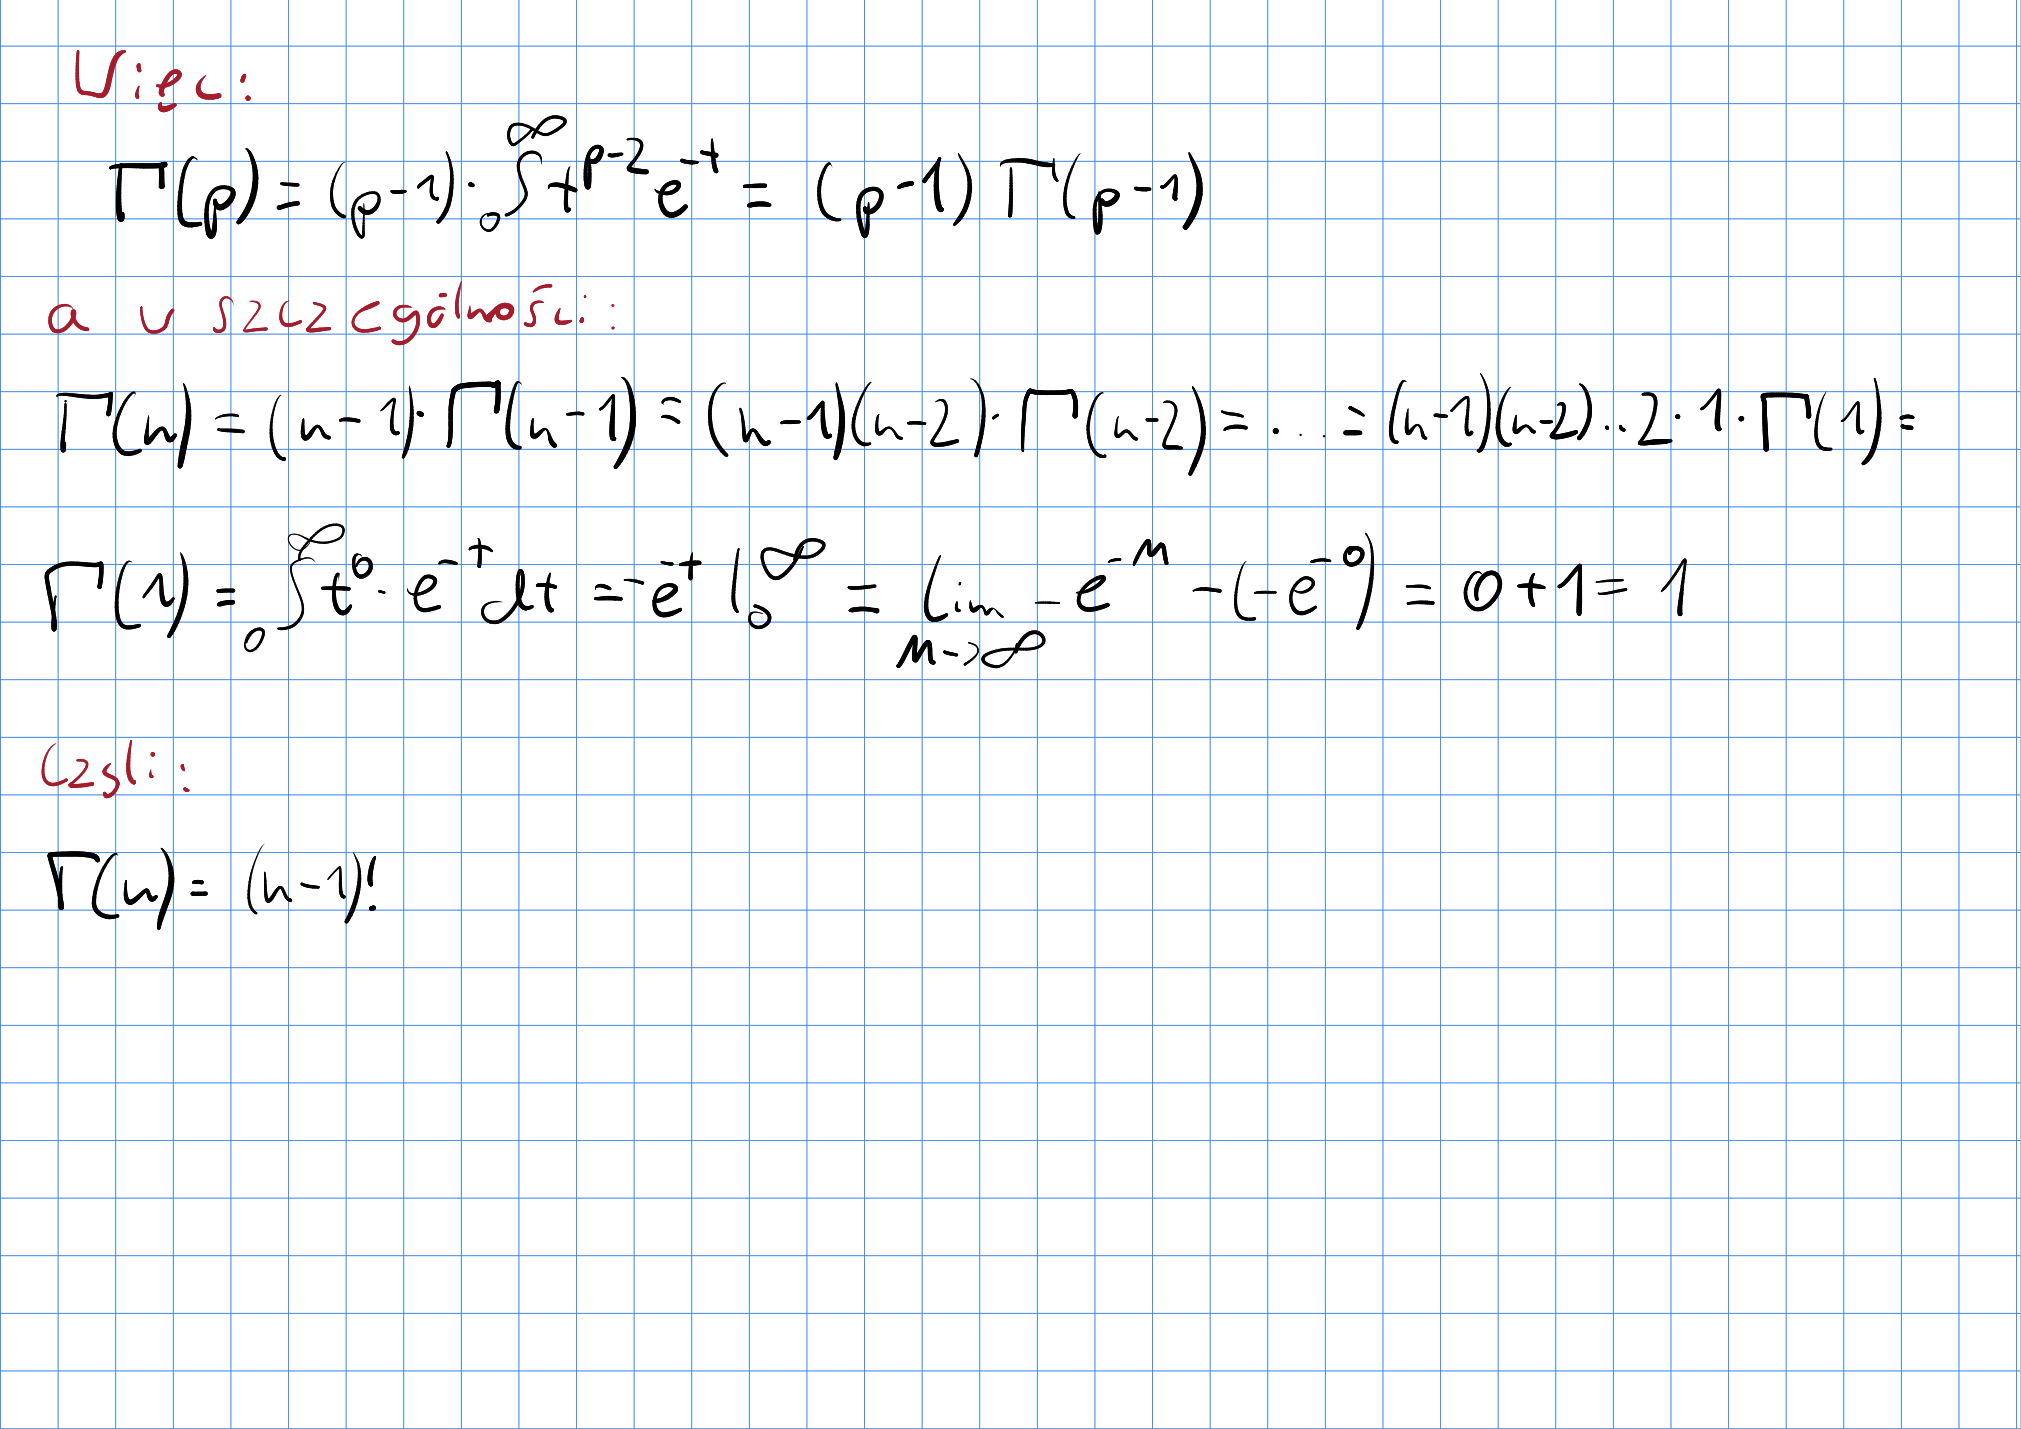 Więc:
Γ(p) = (p-1) · ₀∫^∞ t^{p-2} e^{-t} = (p-1) Γ(p-1)
a w szczególności:
Γ(n) = (n-1) · Γ(n-1) = (n-1)(n-2) · Γ(n-2) = ... = (n-1)(n-2)..2 · 1 · Γ(1) =
Γ(1) = ₀∫^∞ t^0 · e^{-t} dt = -e^{-t} |₀^∞ = lim_{M->∞} -e^{-M} - (-e^{-0}) = 0+1 = 1
Czyli:
Γ(n) = (n-1)!